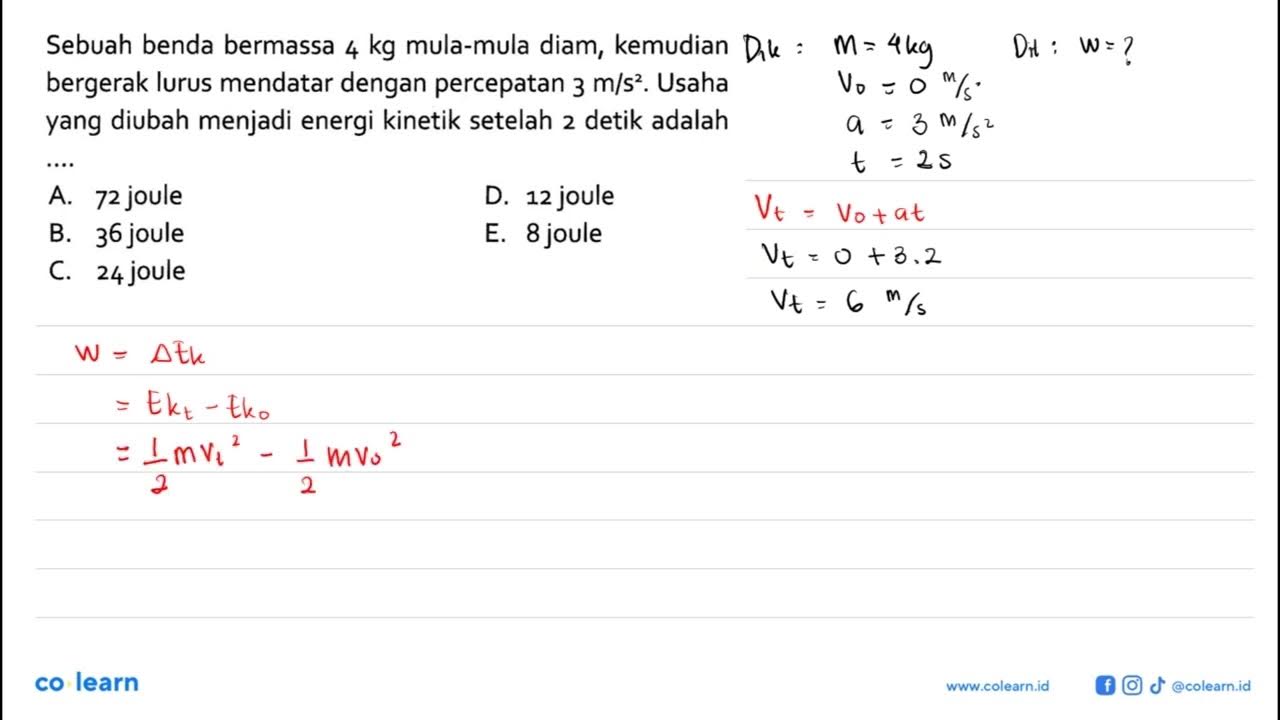 Sebuah benda bermassa 4 kg mula-mula diam, kemudian
bergerak lurus mendatar dengan percepatan 3 m/s². Usaha
yang diubah menjadi energi kinetik setelah 2 detik adalah
....
A. 72 joule
B. 36 joule
C. 24 joule
D. 12 joule
E. 8 joule
Dik : m = 4 kg
V₀ = 0 m/s
a = 3 m/s²
t = 2 s
Dit : W = ?
Vt = V₀ + at
Vt = 0 + 3.2
Vt = 6 m/s
W = ΔEk
= Ekt - Ek₀
= 1/2 mVt² - 1/2 mV₀²
co learn
www.colearn.id
@colearn.id